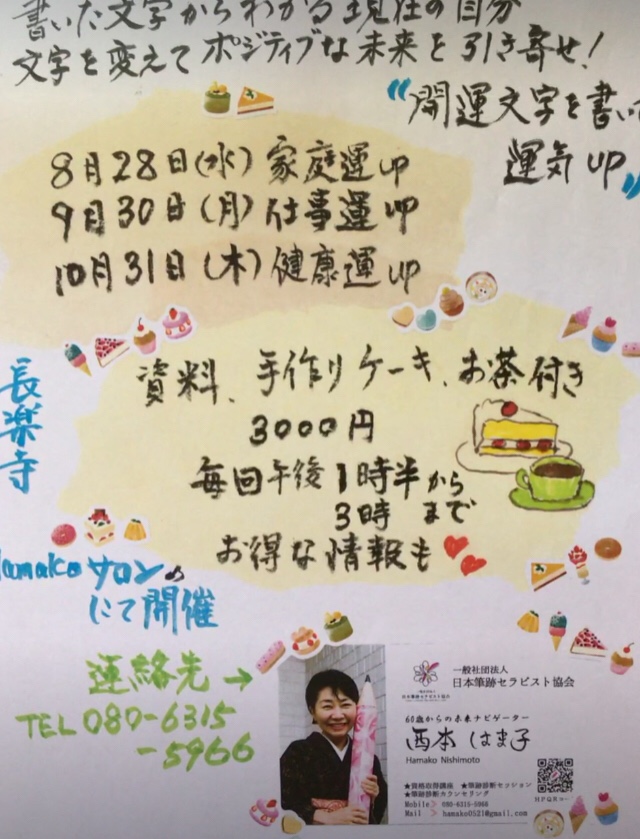 書いた文字からわかる現在の自分
文字を変えてポジティブな未来を引き寄せ!
"開運文字を書い
運気UP"
8月28日(水)家庭運UP
9月30日(月)仕事運UP
10月31日(木)健康運UP
資料、手作りケーキ、お茶付き
3000円
毎回午後1時半から
3時まで
お得な情報も
長楽寺
Hamakoサロン
にて開催
連絡先→
TEL080-6315
-5966
一般社団法人
日本筆跡セラピスト協会
60歳からの未来ナビゲーター
西本 はま子
Hamako Nishimoto
★資格取得講座 ★筆跡診断セッション
★筆跡診断カウンセリング
Mobile> 080-6315-5966
Mail> hamako0521@gmail.com
HPQRコー